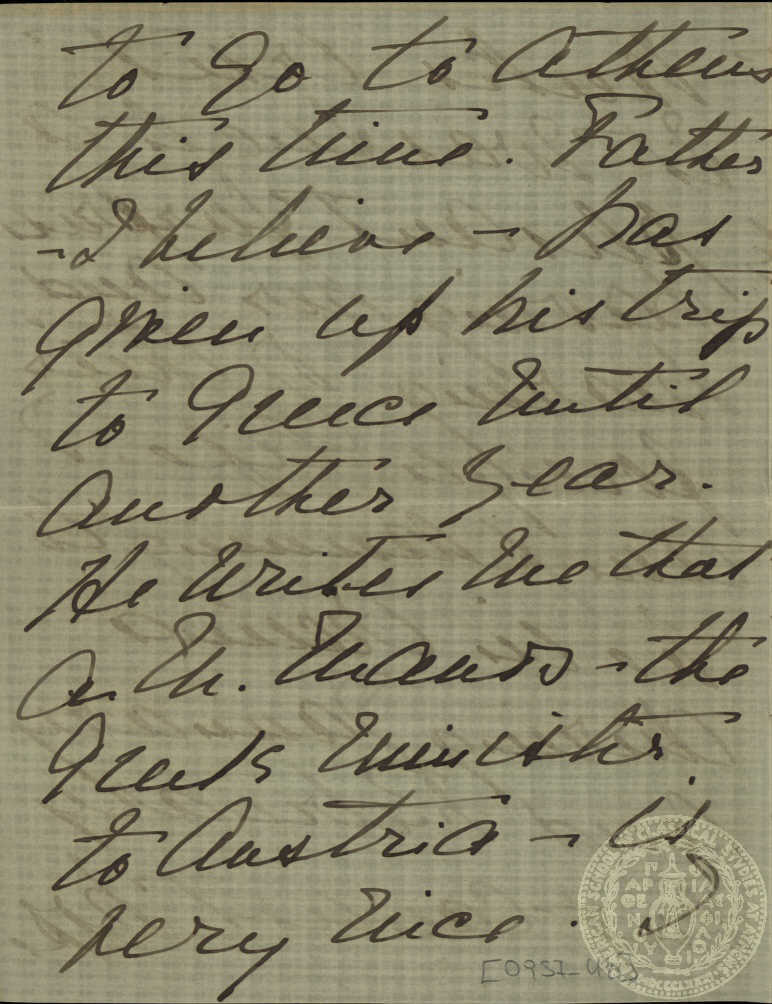 to go to Athens
this time. Father
- I believe - has
given up his trip
to Greece until
another year.
He writes me that
a M. Manos - the
Greek minister
to Austria - is
very nice.
[0957-48]